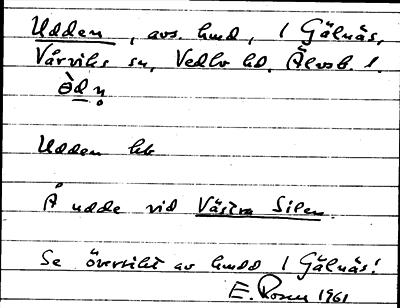 Udden, avs. hmd, i Gälnäs,
Vårviks sn, Vedbo hd, Älvsb. l.
Udden hk
Å udde vid Västra Silen.
Se översikt av hmdd i Gälnäs!
E. Rosén 1961